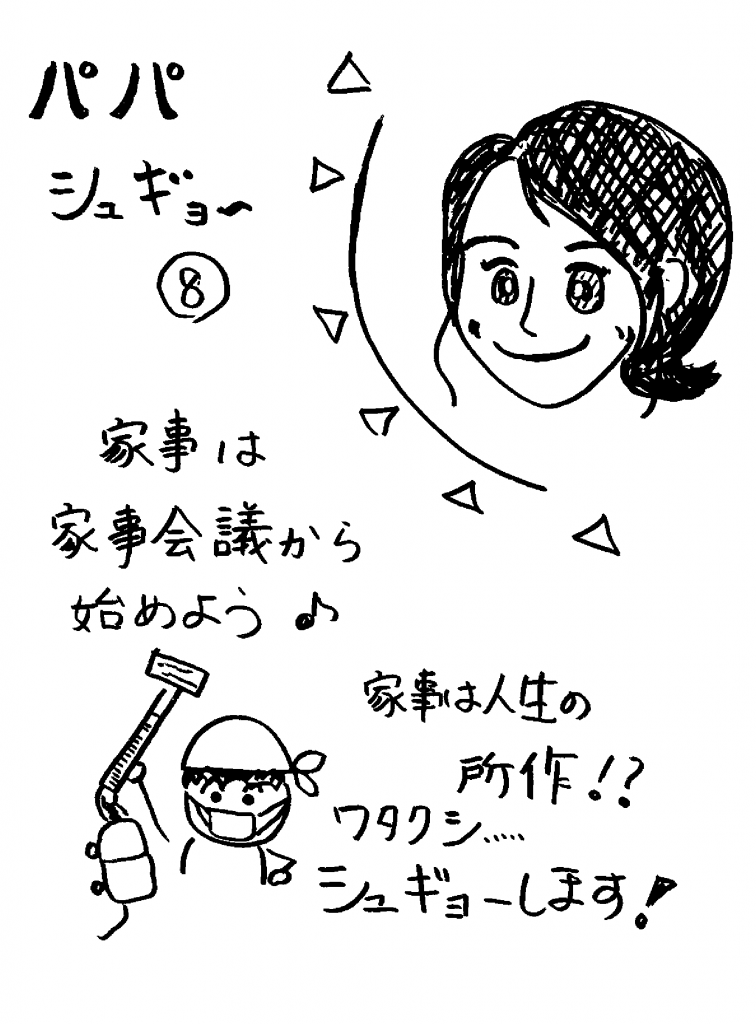 パパ
シュギョー
⑧
家事は
家事会議から
始めよう♪
家事は人生の
所作!?
ワタクシ.....
シュギョーします!